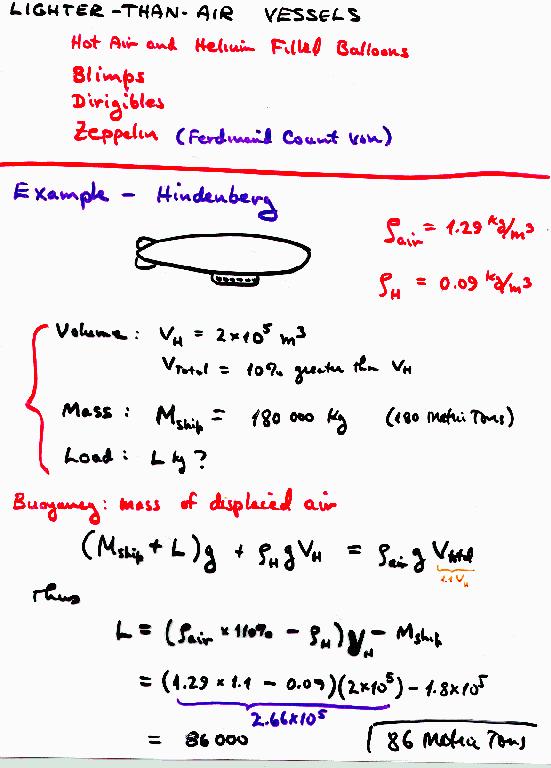 LIGHTER-THAN-AIR VESSELS
Hot Air and Helium Filled Balloons
Blimps
Dirigibles
Zeppelin (Ferdinand Count von)
Example - Hindenberg
ρair = 1.29 kg/m³
ρH = 0.09 kg/m³
Volume: VH = 2×10⁵ m³
VTotal = 10% greater than VH
Mass: Mship = 180 000 kg (180 Metric Tons)
Load: L kg?
Buoyancy: mass of displaced air
(Mship + L)g + ρH g VH = ρair g Vtotal
1.1 VH
Thus
L = (ρair × 110% - ρH)VH - Mship
= (1.29 × 1.1 - 0.09)(2×10⁵) - 1.8×10⁵
2.66×10⁵
= 86 000 86 Metric Tons